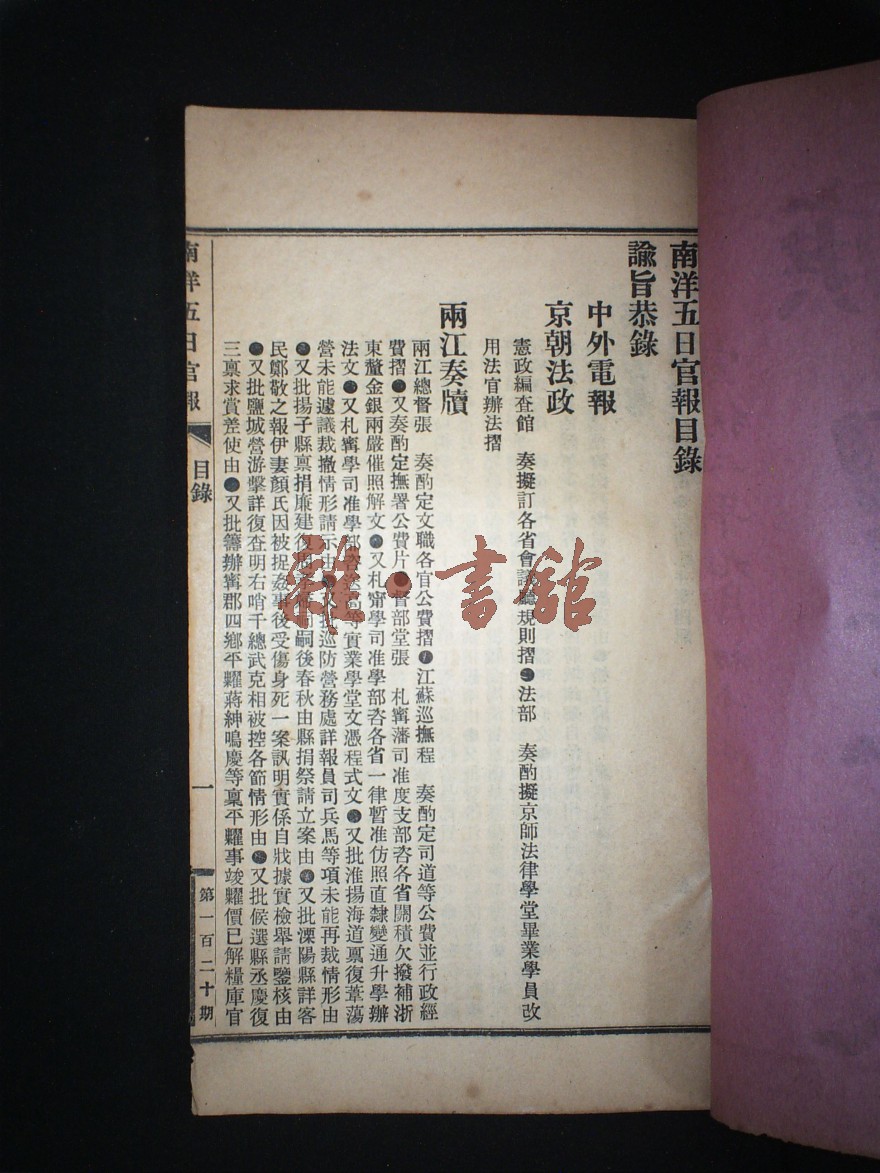 南洋五日官報目錄
諭旨恭錄
中外電報
京朝法政
憲政編查館 奏擬訂各省會議廳規則摺●法部 奏酌擬京師法律學堂畢業學員改
用法官辦法摺
兩江奏牘
兩江總督張 奏酌定文職各官公費摺●江蘇巡撫程 奏酌定司道等公費並行政經
費摺●又奏酌定撫署公費片●督部堂張 札寗藩司准度支部咨各省關積欠撥補浙
東釐金銀兩嚴催照解文●又札甯學司准學部咨各省一律暫准仿照直隸變通升學辦
法文●又札寗學司准學部咨送高等實業學堂文憑程式文●又批淮揚海道稟復葦蕩
營未能遽議裁撤情形請示由●又批巡防營務處詳報員司兵馬等項未能再裁情形由
●又批揚子縣稟捐廉建復 嗣後春秋由縣捐祭請立案由●又批溧陽縣詳客
民鄭敬之報伊妻顏氏因被捉姦事後受傷身死一案訊明實係自戕據實檢舉請鑒核由
●又批鹽城營游擊詳復查明右哨千總武克相被控各節情形由●又批候選縣丞慶復
三稟求賞差使由●又批籌辦寗郡四鄉平糶蔣紳鳴慶等稟平糶事竣糶價已解糧庫官
南洋五日官報
目錄
一
第一百二十期
雜·書館